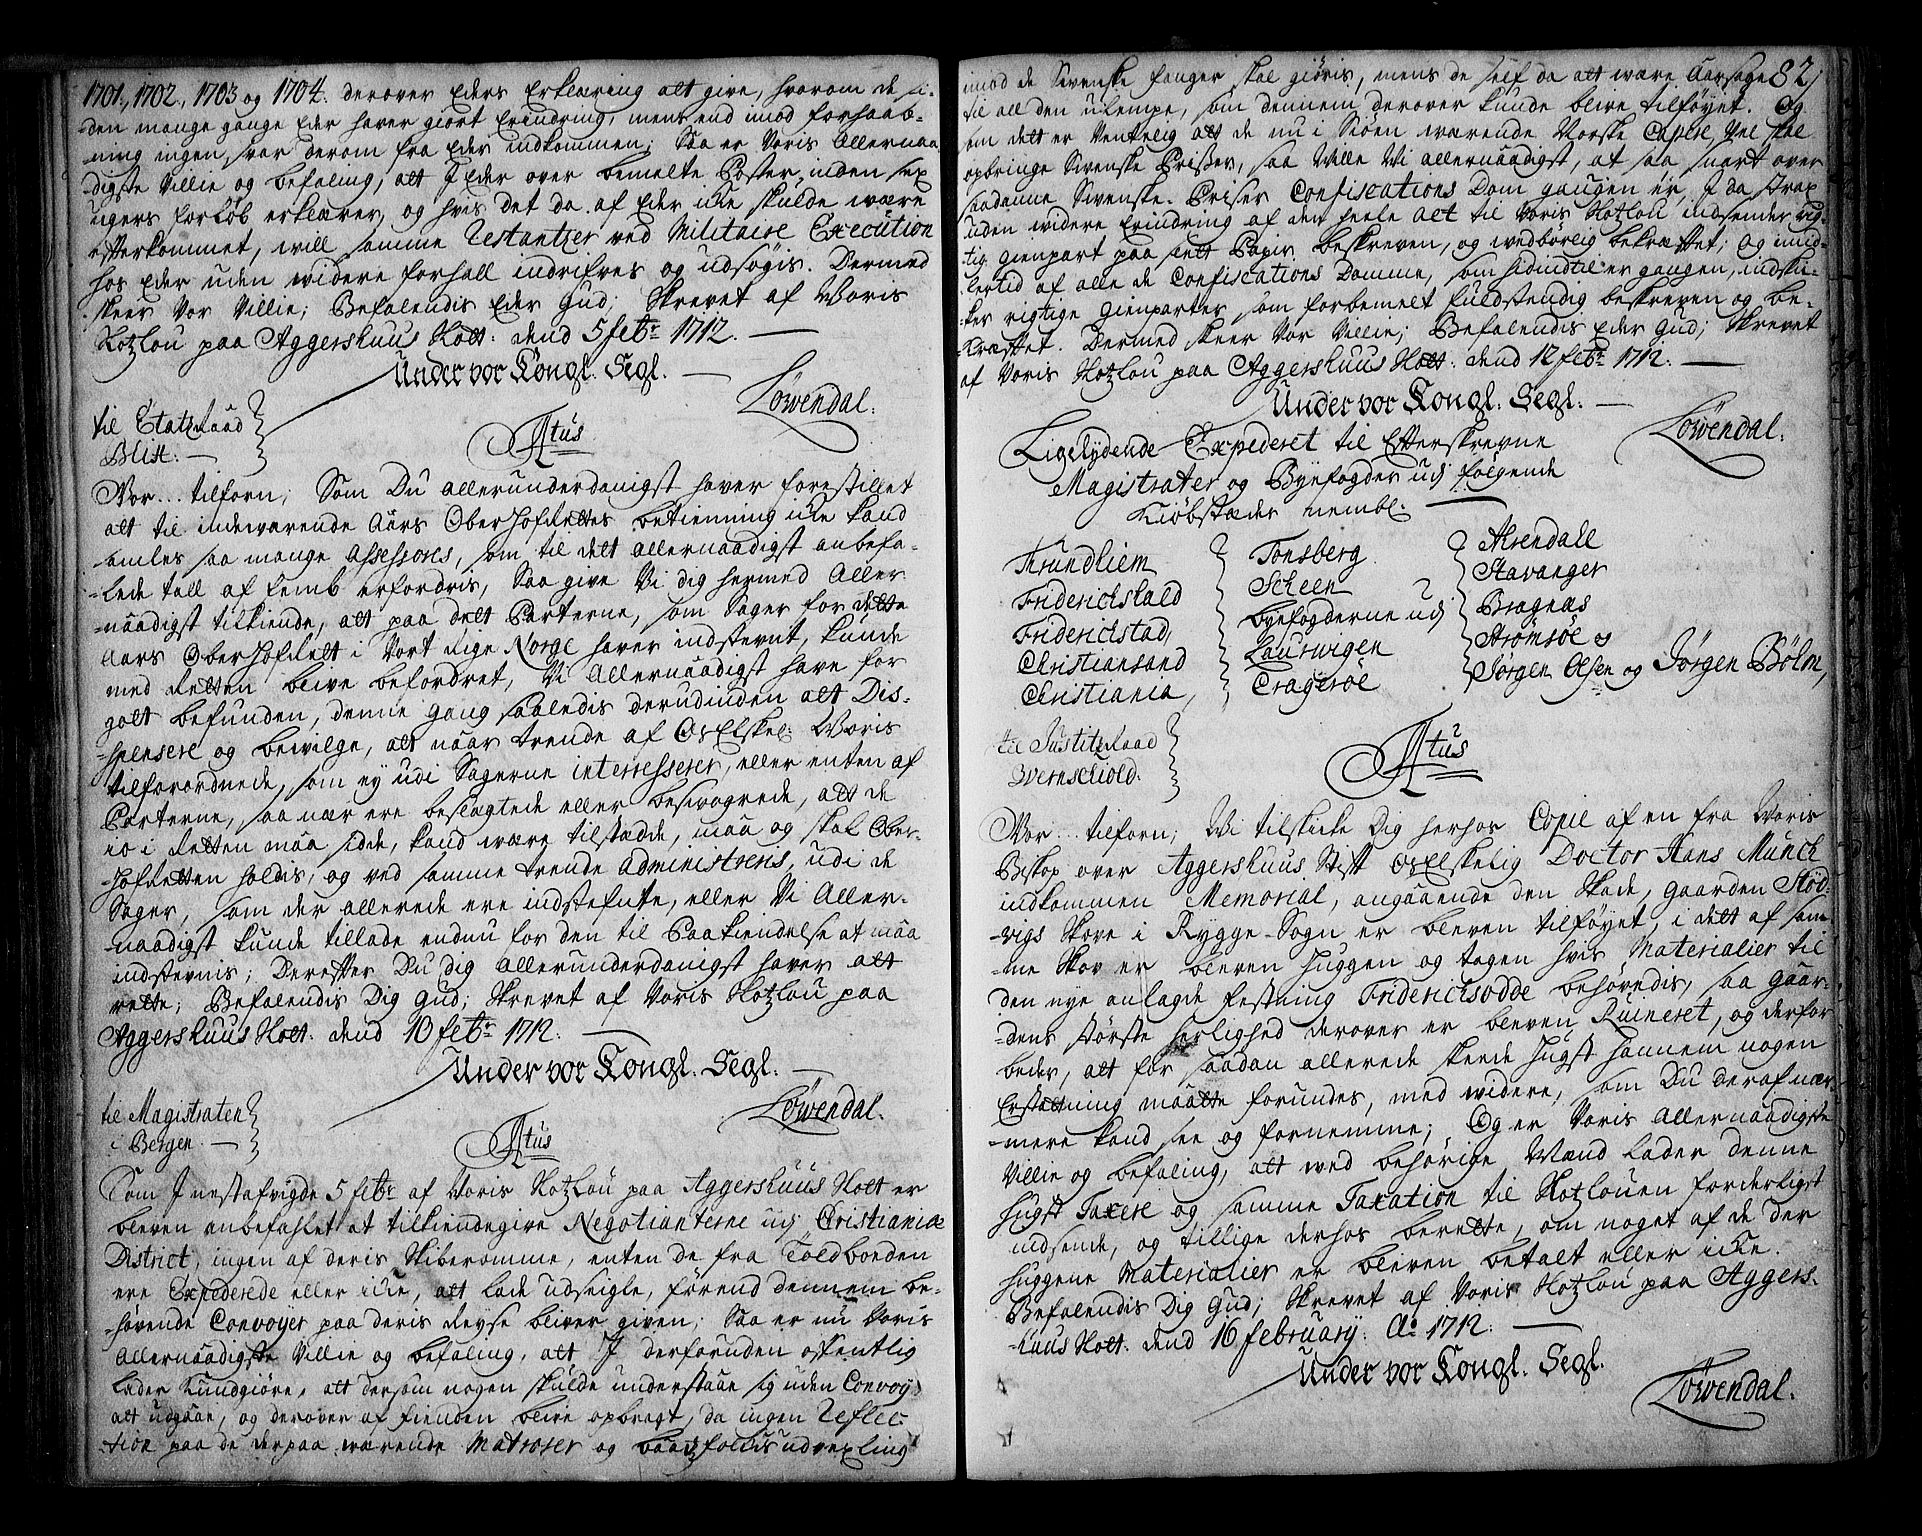 1701, 1702, 1703 og 1704. derover Eders Erklæring alt give, hvorom de si-
den mange gange Eder haver giort Erindring, mens end imod forhaab-
ning ingen svar derom fra Eder indkommen; Saa er Voris Allernaa
digste Villie og befaling, alt I Eder over bemelte Poster, inden sex
ugers forløb erklærer, og hvis det da af Eder icke skulde være
efterkommet, vill samme Restantzer ved Militaire Execution
hos Eder uden widere forhall indrifves og udsøgis. Dermed
skeer Vor Villie; Befalendis Eder Gud; Skrevet af Voris
Slotzlou paa Aggershuus Slott. dend 5 febr 1712.
Under vor Kongl. Segl.
Løwendal.
til Etatzraad
Blix.
Atus
Vor... tilforn; Som Du allerunderdanigst haver forestillet
alt til indewærende Aars OberHofRettes betienning icke kand
samles saa mange assessores, som til delt allernaadigst anbefa-
lede tall af femb erfordris, Saa give Vi dig hermed Aller
naadigst tilkiende, alt paa delt Parterne, som Sager for dette
Aars OberHofRett i Vort Rige Norge haver indstevnt, kunde
med Retten blive befordret, Vi Allernaadigst have for
godt befunden, denne gang saaledis derudinden alt Dis-
pensere og bewilge, alt naar trende af Os Elskel. Voris
tilforordnede, som ey udi Sagerne interresserer, eller enten af
Parterne, saa nær ere beslægtede eller beswogrede, att de
jo i Retten maa sidde, kand være tilstædde, maa og skal Ober-
Hofretten holdis, og ved samme trende administreris, udi de
Sager, som der allerede ere indstefnte, eller Vi Aller-
naadigst kunde tillade endnu for den til Paakiendelse at maa
indstevnis; Derefter Du dig allerunderdanigst haver alt
rette; Befalendis Dig Gud; Skrevet af Voris Slotzlou paa
Aggershuus Slott. dend 10 febr 1712.
Under vor Kongl. Segl.
Løwendal.
til Magistraten
i Bergen.
Atus
Som I nestafvigde 5 febr af Voris Slotzlou paa Aggershuus Slott er
bleven anbefahlet at tilkiendegive Negotianterne udj Cristianiæ
District, ingen af deris Skiberomme, enten de fra Toldboeden
ere Expederede eller icke, alt lade udseigle, førend dennem be-
hørende Convoyer paa deris Reyse bliver given; Saa er nu Voris
Allernaadigste Villie og befaling, alt I derforuden offentlig
lader Kundgiøre, alt dersom nogen skulde understaae sig uden Convoy
alt udgaae, og derover af fienden blive opbragt, da ingen Reflec-
tion paa de derpaa wærende Matroser og baadsfolkis udvexling
82
imod de Svenske fanger skal giøris, mens de self da alt wære Aarsage
til all den ulempe, som dennem derover kunde blive tilføyet. Og
som delt er Ventelig alt de nu i Siøen wærende Norske Capere, Vel skal
opbringe Svenske Prisser, saa Wille Vi allernaadigst, at saa snart over
saadanne Svenske Priser Confiscations Dom gangen er, I da strax
uden widere Erindring af den heele Act til Voris Slotzlou indsender rig-
tig gienpart paa slett Papir beskreven, og wedbørlig bekræftet; og imid-
lertid af alle de Confiscations Domme, som hidindtil er gangen, indskic-
ker rigtige gienparter som forbemelt fuldstendig beskreven og be-
kræftet. Dermed skeer Vor Villie; Befalendis Eder Gud; Skrevet
af Voris Slotzlou paa Aggershuus Slott. dend 12 febr 1712.
Under vor Kongl. Segl.
Løwendal.
Ligelydende Expederet til Efterskrevne
Magistrater og Byefogder udj følgende
Kiøbstæder nembl.
Trundhiem
Friderichshald
Friderichstad,
Christiansand
Christiania,
Tonsberg
Scheen
byefogderne udj
Laurwigen
Cragerøe
Arendall
Stavanger
Bragnæs
Strømsøe og
Jørgen Olsen og Jørgen Bölm,
til Justitzraad
Wernschiold.
Atus
Vor... tilforn; Wi tilskicke Dig herhos Copie af en fra Voris
Biskop over Aggershuus Stift Os Elskelig Doctor Hans Munch
indkommen Memorial, angaaende den Skade, gaarden Stød-
vigs Skove i Rygge-Sogn er bleven tilføyet, i delt af sam-
me Skov er bleven huggen og tagen hvis Materialier til
den nye anlagde festning Friderichsodde behøvedis, saa gaar-
dens største herlighed derover er bleven Ruineret, og derfor
beder, alt for saadan allerede skeede hugst hannem nogen
Erstatning maatte forundes, med widere, som Du deraf nær-
mere kand see og fornemme; Og er Voris Allernaadigste
Villie og befaling, alt wed behørige Mænd lader denne
hugst Taxere og samme Taxation til Slotzlouen forderligst
indsende, og tillige derhos berette, om noget af de der
huggene Materialier er bleven betalt eller icke.
Befalendis Dig Gud; Skrevet af Voris Slotzlou paa Aggers-
huus Slott. dend 16 february. Ao 1712.
Under vor Kongl. Segl.
Løwendal.